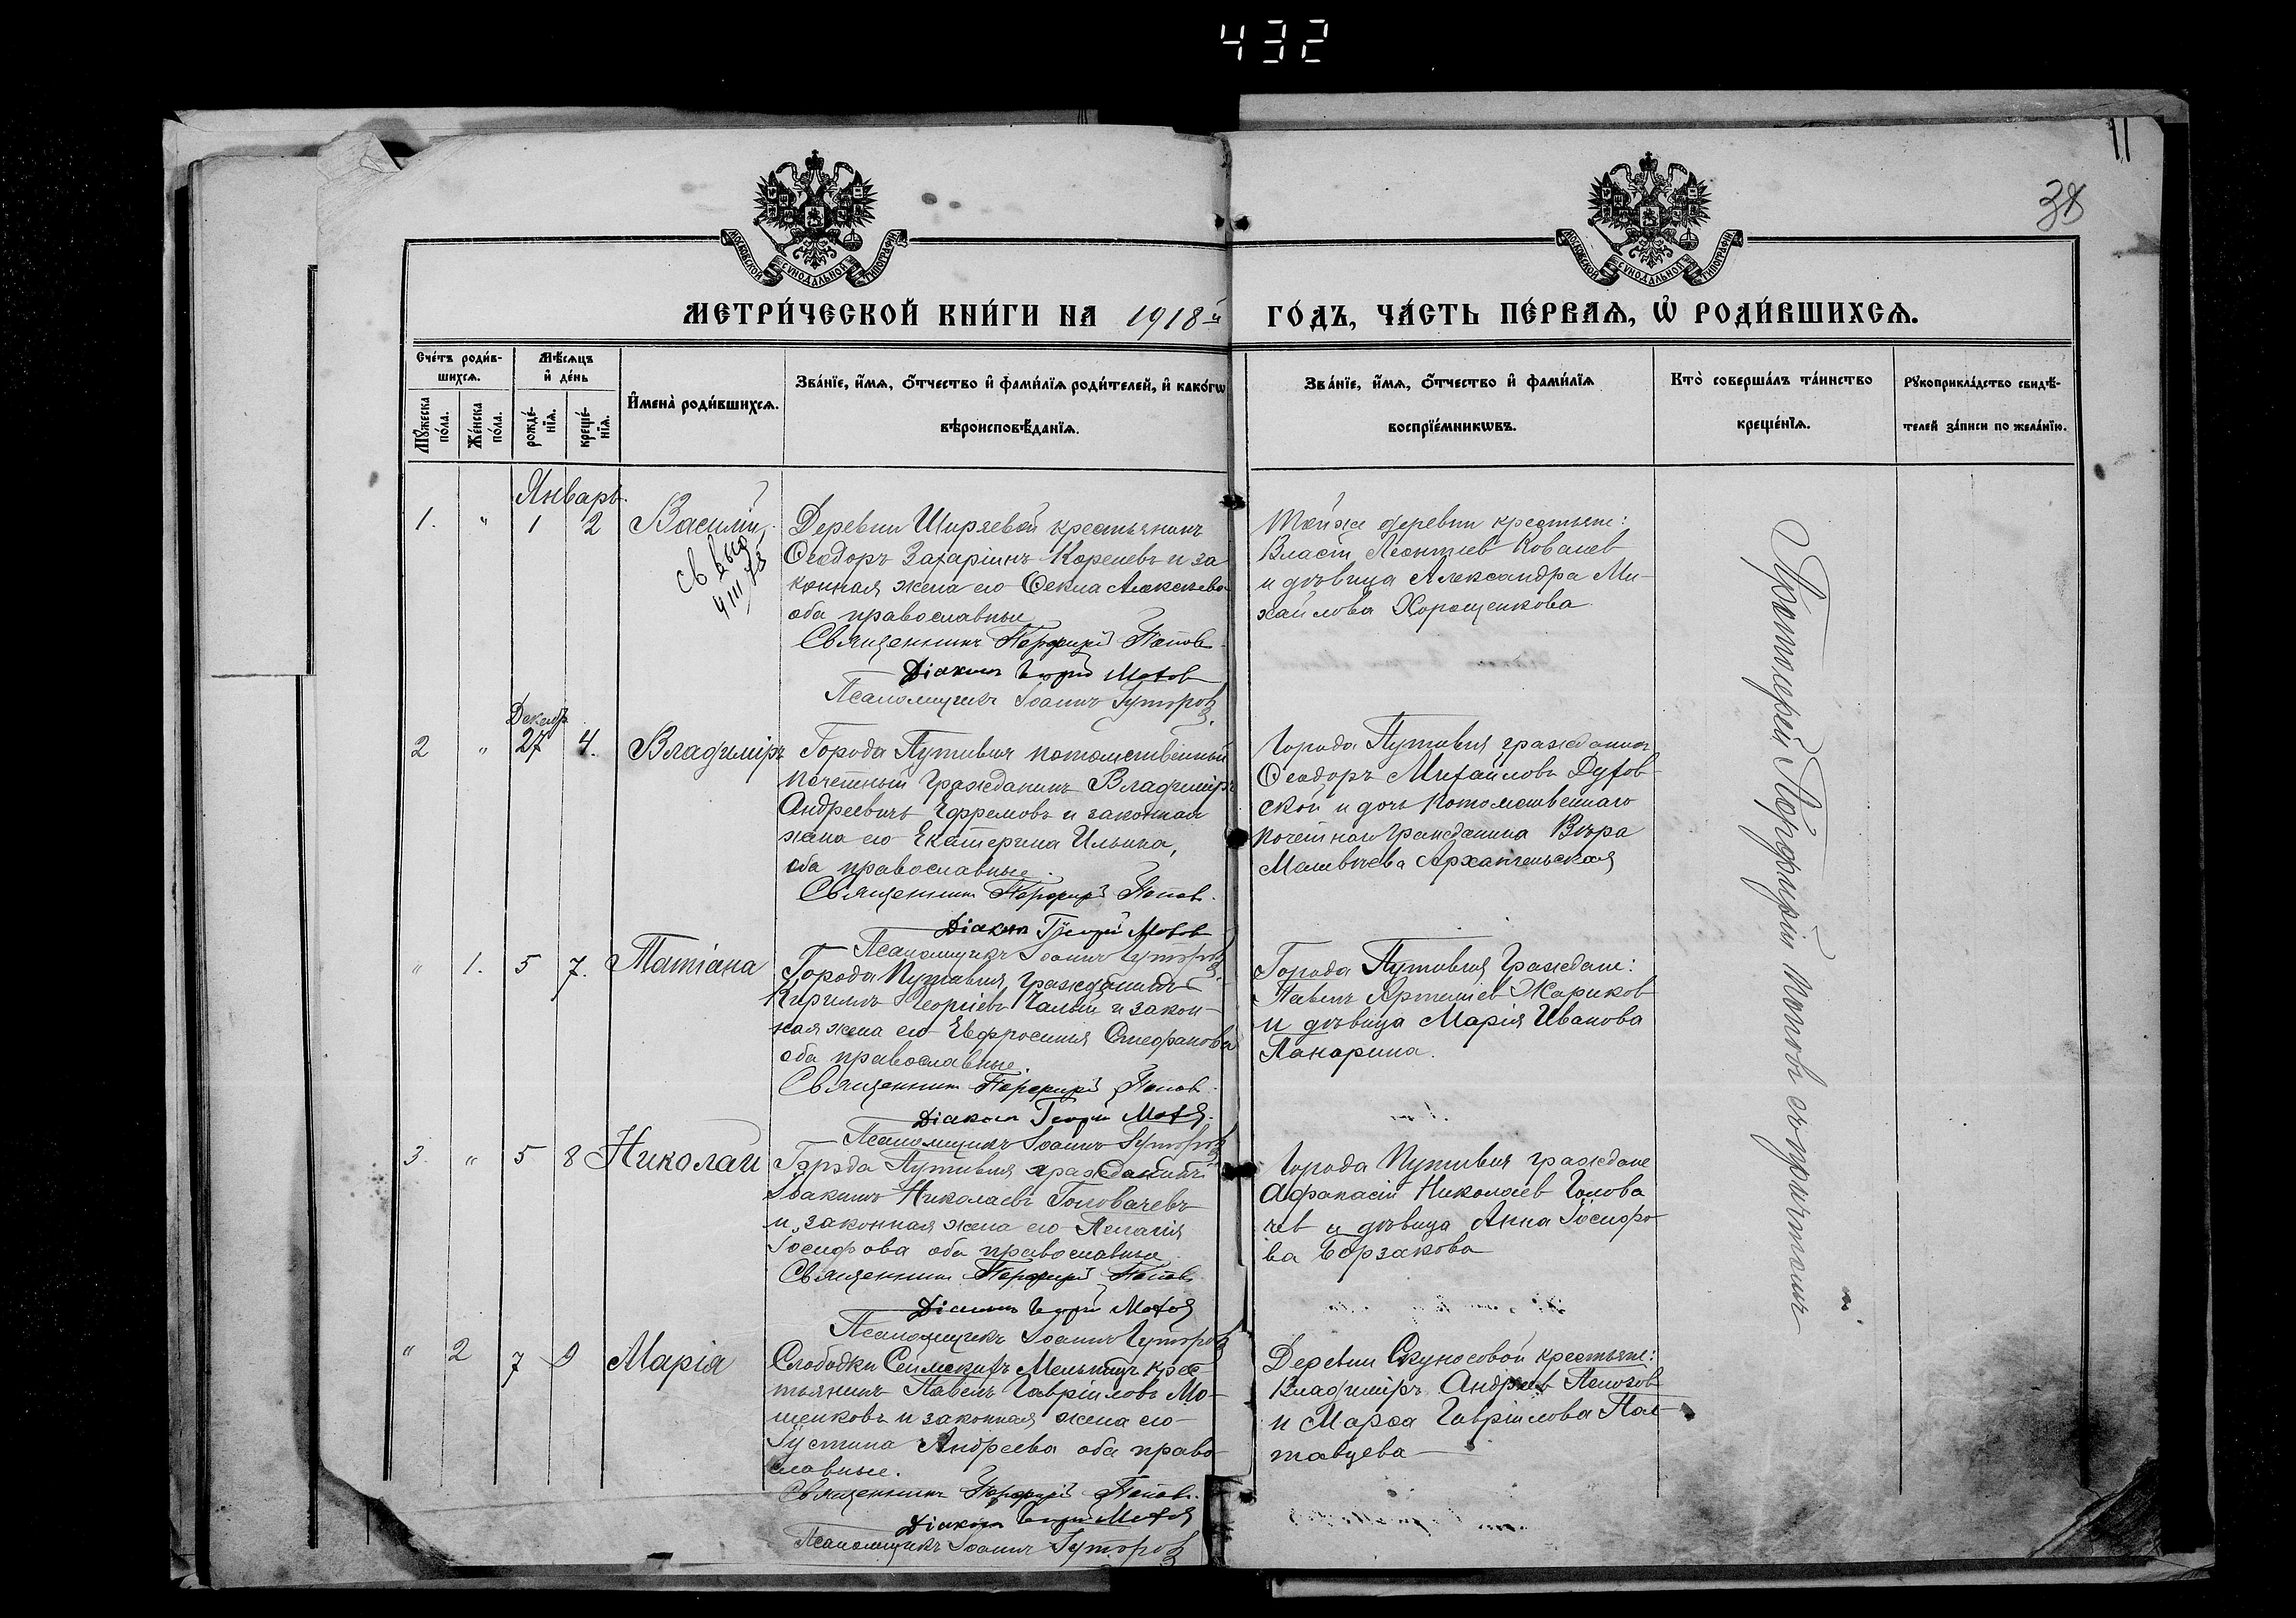 432
11
38
МОСКОВСКОЙ СѴНОДАЛЬНОЙ ТИПОГРАФІИ
МОСКОВСКОЙ СѴНОДАЛЬНОЙ ТИПОГРАФІИ
МЕТРИ́ЧЕСКОЙ КНИ́ГИ НА 1918й ГО́ДЪ, ЧА́СТЬ ПЕ́РВАѦ, Ѡ҆ РОДИ́ВШИХСѦ.
Сче́тъ роди́в-
шихсѧ.
Мꙋ́жеска по́ла.
Же́нска по́ла.
Мѣ́сѧцъ
и҆ де́нь
рожде́-
нїѧ.
креще́-
нїѧ.
И҆мена̀ роди́вшихсѧ.
Зва́нїе, и҆́мѧ, ѻ҆́тчество и҆ фами́лїѧ роди́телей, и҆ како́гѡ
вѣроисповѣ́данїѧ.
Зва́нїе, и҆́мѧ, ѻ҆́тчество и҆ фами́лїѧ
воспрїе́мникѡвъ.
Кто̀ соверша́лъ та́инство
креще́нїѧ.
Рꙋкоприкла́дство свидѣ́-
телей за́писи по жела́нїю.
Январь.
1. " 1 2 Василій
св выд
4 III 73
Деревни Ширяевой крестьянинъ
Ѳеодоръ Захаріинъ Кореневъ и за
конная жена его Ѳекла Алексѣева
оба православные
Священникъ Порфирій Поповъ
Діаконъ Георгій Мотов
Псаломщикъ Іоаннъ Гуторов
Той же деревни крестьяне:
Власій Леонтіев Ковалев
и дѣвица Александра Ми-
хайлова Хорошенкова
Декабр
2 " 27 4. Владиміръ
Города Путивля потомственный
почетный гражданинъ Владиміръ
Андреевичъ Ефремовъ и законная
жена его Екатерина Ильина,
оба православные.
Священникъ Порфирій Попов.
Діаконъ Георгій Мотов
Псаломщикъ Іоаннъ Гуторов
Города Путивля гражданинъ
Ѳеодоръ Михайловъ Духов-
ской и дочь потомственнаго
почетнаго гражданина Вѣра
Матвѣева Архангельская
" 1. 5 7. Татіана
Города Путивля, гражданинъ
Кириллъ Георгіевъ Чалый и закон-
ная жена его Евфросинія Стефанова
оба православные.
Священникъ Порфирій Попов.
Діаконъ Георгій Мотов.
Псаломщикъ Іоаннъ Гуторов
Города Путивля Граждане:
Павелъ Артеміев Жариков
и дѣвица Марія Иванова
Панарина.
3. " 5 8 Николай
Города Путивля гражданинъ
Іоакимъ Николаевъ Головачевъ
и законная жена его Пелагія
Іосифова оба православные
Священникъ Порфирій Попов
Діаконъ Георгій Мотов
Псаломщикъ Іоаннъ Гуторов
Города Путивля граждане
Афанасій Николаев Голова
чев и дѣвица Анна Іосифо-
ва Борзакова
" 2 7 9 Марія
Слободки Сеймскихъ Мельницъ крес
тьянинъ Павелъ Гавріиловъ Мо-
шенковъ и законная жена его
Іустина Андреева оба право
славные.
Священникъ Порфирій Попов.
Діаконъ Георгій Мотов
Псаломщикъ Іоаннъ Гуторов
Деревни Скуносовой крестьяне:
Владиміръ Андреев
и Марѳа Гавріилова Пол-
тавцева
Протоіерей Порфирій Поповъ съ причтомъ